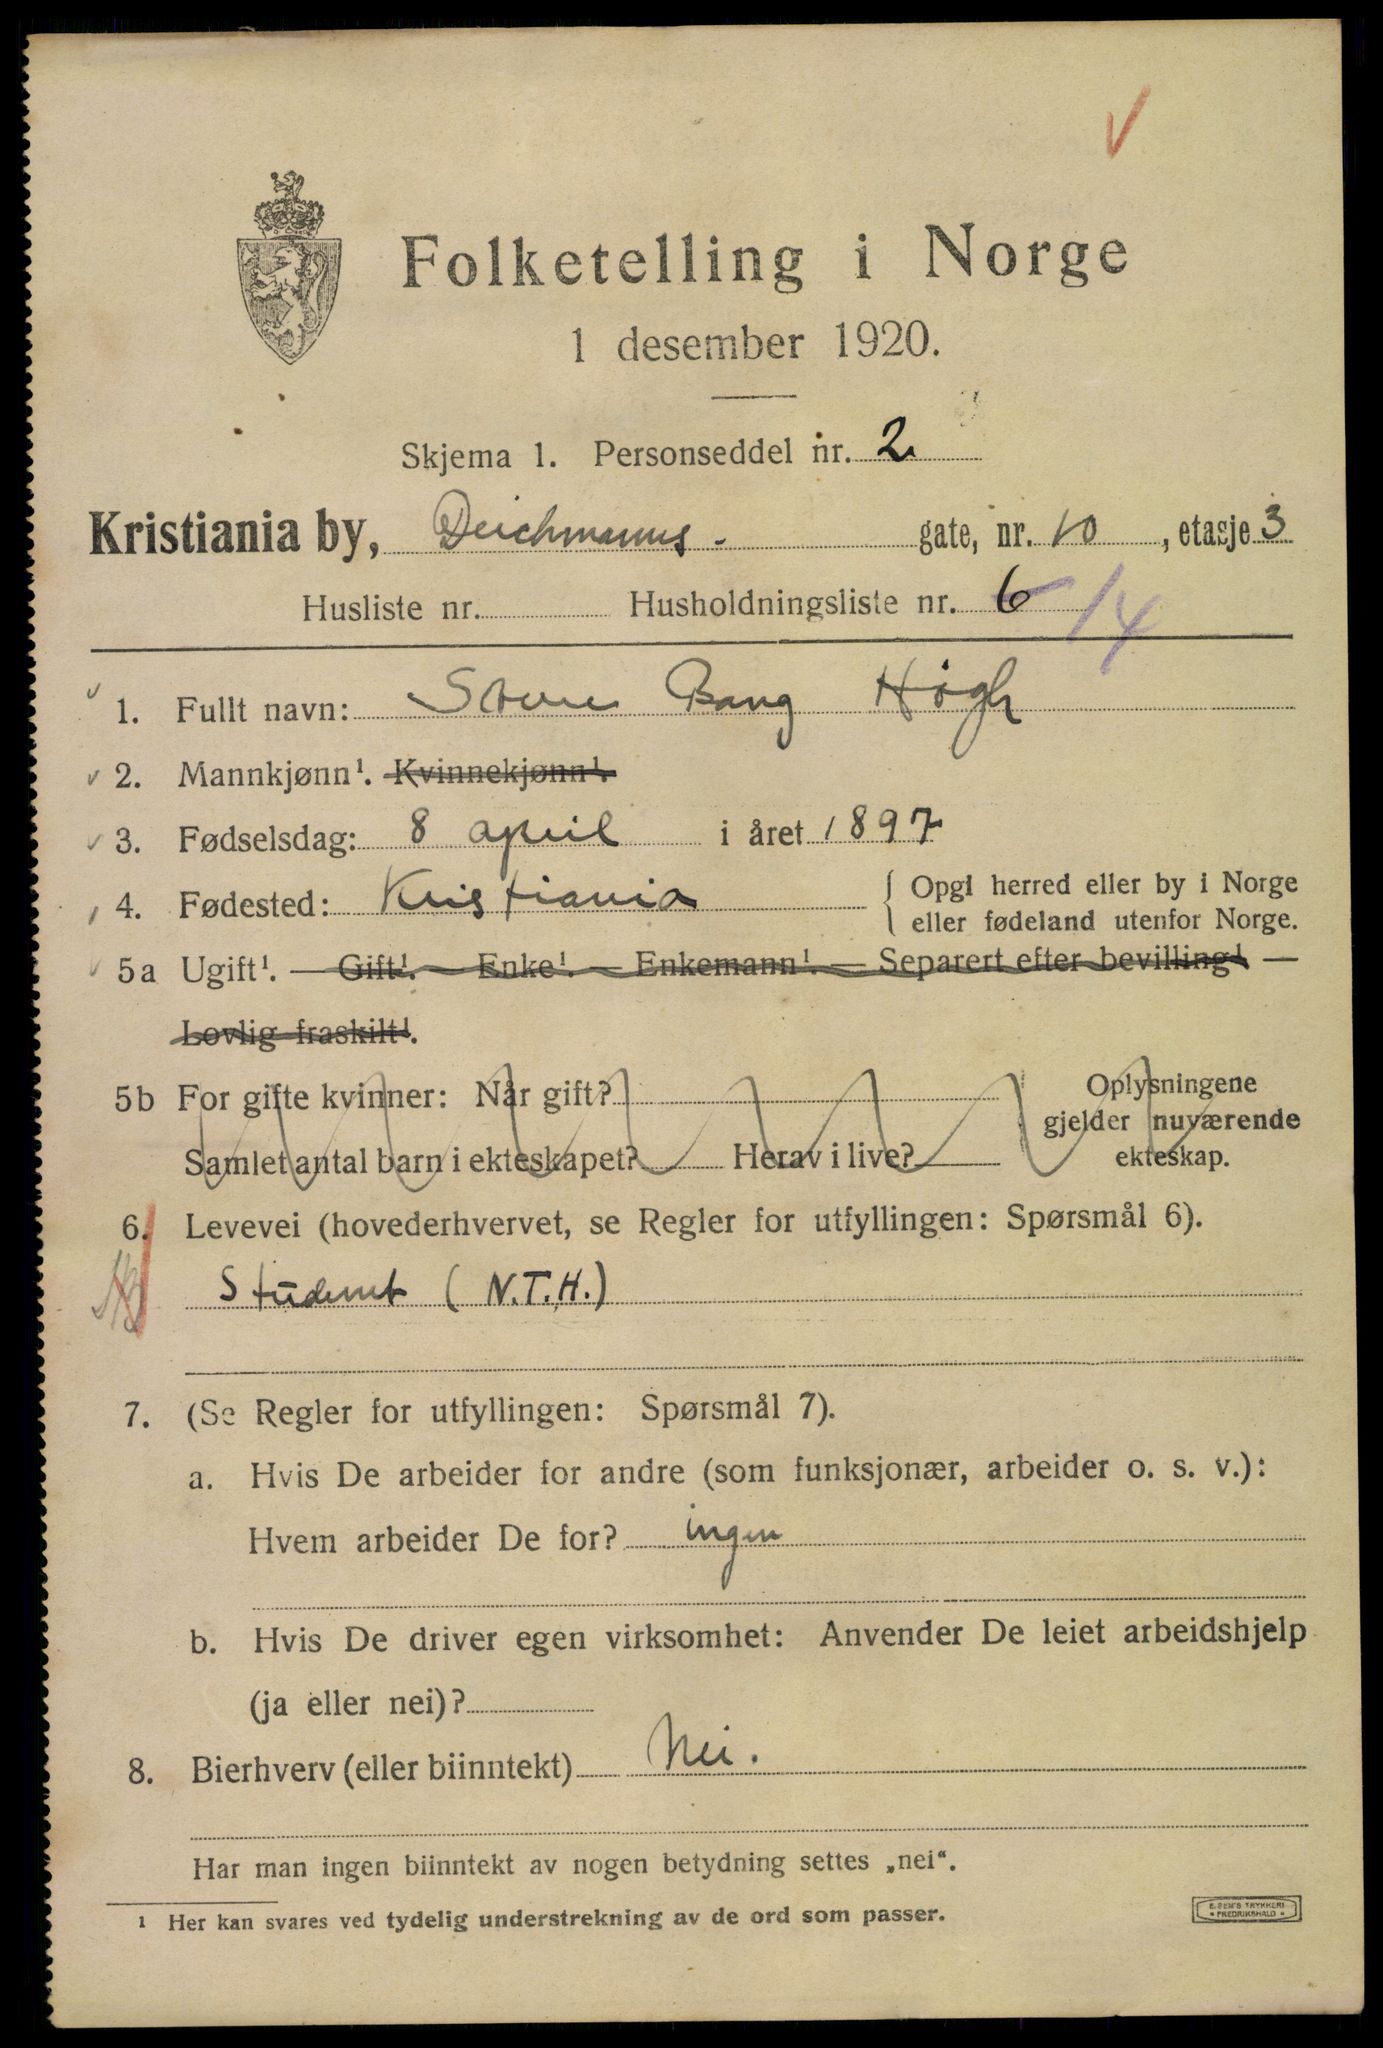 Folketelling i Norge
1 desember 1920.
Skjema 1. Personseddel nr. 2
Kristiania by, Deichmanns - gate, nr. 10, etasje 3
Husliste nr. Husholdningsliste nr. 6 14
1. Fullt navn: Bang Høgh
2. Mannkjønn¹. Kvinnekjønn¹.
3. Fødselsdag: 8 april i året 1897
4. Fødested: Kristiania { Opgi herred eller by i Norge
eller fødeland utenfor Norge.
5a Ugift¹. — Gift¹. — Enke¹. — Enkemann¹. — Separert efter bevilling¹. —
Lovlig fraskilt¹.
5b For gifte kvinner: Når gift? Oplysningene
gjelder nuværende
Samlet antal barn i ekteskapet? Herav i live? ekteskap.
6. Levevei (hovederhvervet, se Regler for utfyllingen: Spørsmål 6).
Student (N.T.H.)
7. (Se Regler for utfyllingen: Spørsmål 7).
a. Hvis De arbeider for andre (som funksjonær, arbeider o. s. v.):
Hvem arbeider De for? ingen
b. Hvis De driver egen virksomhet: Anvender De leiet arbeidshjelp
(ja eller nei)?
8. Bierhverv (eller biinntekt) Nei.
Har man ingen biinntekt av nogen betydning settes „nei“.
1 Her kan svares ved tydelig understrekning av de ord som passer.
E. SEM'S TRYKKERI
• FREDRIKSHALD •